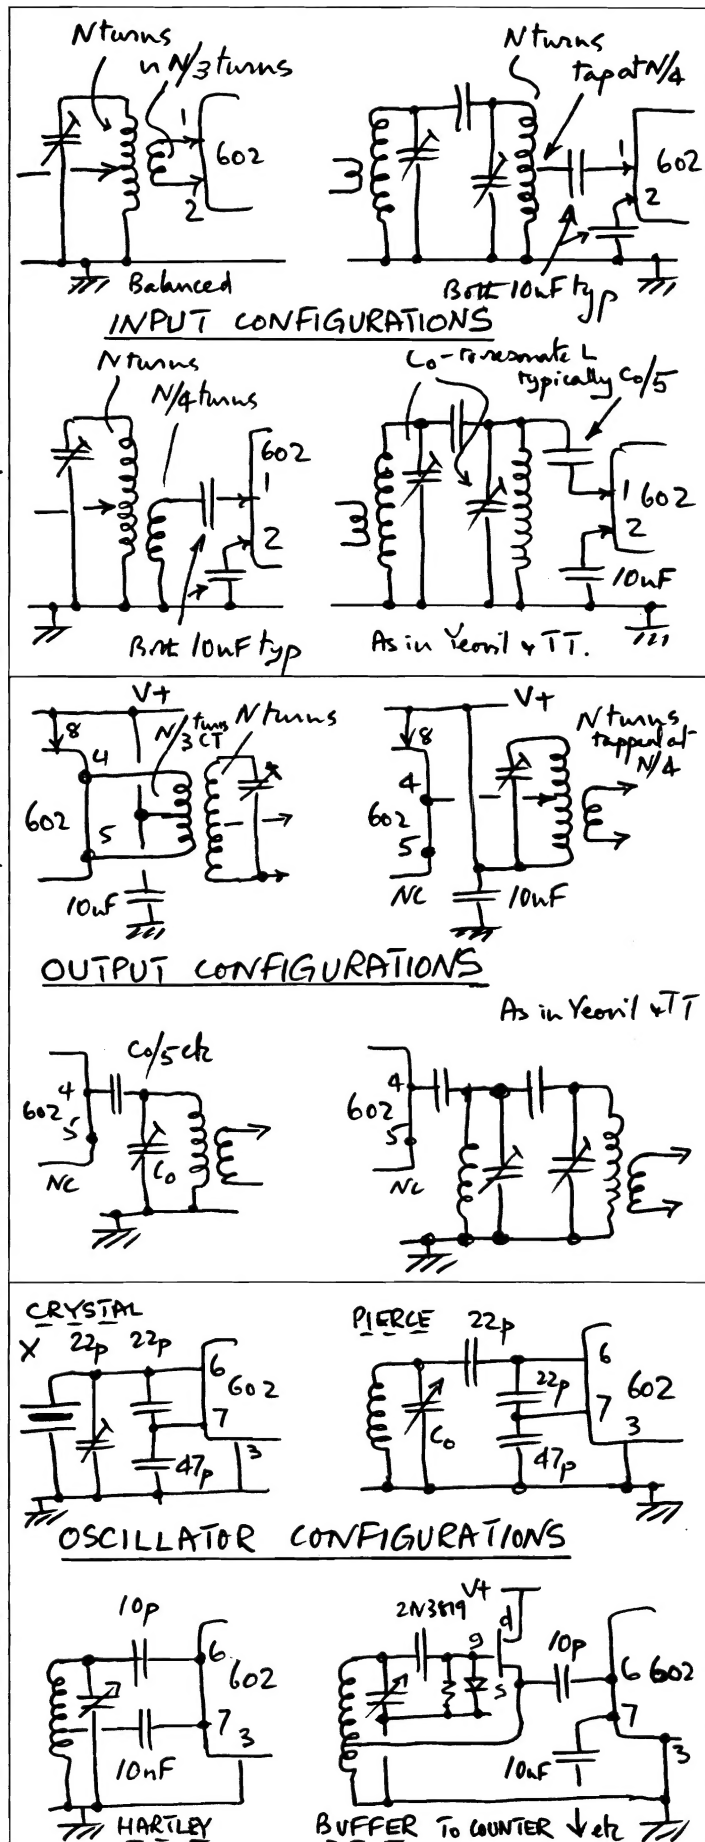 N turns
n N/3 turns
1
602
2
Balanced
N turns
tap at N/4
1
602
2
Both 10nF typ
INPUT CONFIGURATIONS
N turns
N/4 turns
602
1
2
Both 10nF typ
Co - to resonate L
typically Co/5
1 602
2
10nF
As in Yeovil & TT.
V+
8
4
N/3 turns CT
N turns
602
5
10nF
V+
8
N turns
tapped at
N/4
4
602
5
NC
10nF
OUTPUT CONFIGURATIONS
As in Yeovil & TT
Co/5 etc
4
602
5
NC
Co
4
602
5
NC
CRYSTAL
X 22p 22p
6
602
7
3
47p
PIERCE
22p
6
602
22p
7
3
Co
47p
OSCILLATOR CONFIGURATIONS
10p
6
602
7
3
10nF
HARTLEY
V+
2N3819
d
g
s
10p
6 602
7
10nF
3
BUFFER TO COUNTER ↓ etc